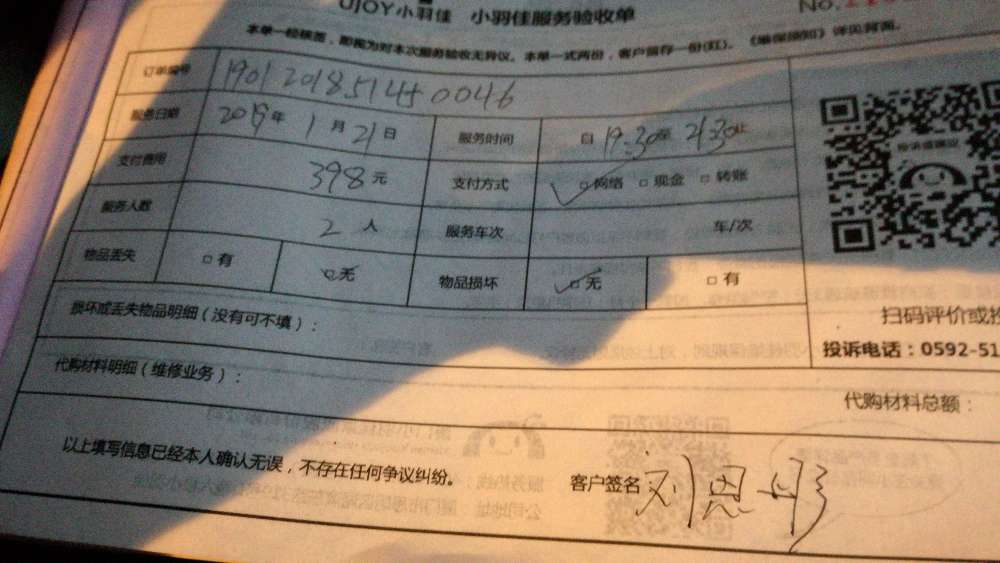 UJOY小羽佳 小羽佳服务验收单 No.
本单一经核签，即视为对本次服务验收无异议。本单一式两份，客户留存一份(红)。《维保须知》详见背面。
订单编号 190120185145 0046
服务日期 2019年1月21日 服务时间 自19:30至21:30止
支付费用 398元 支付方式 网络 现金 转账
服务人数 2人 服务车次 车/次
物品丢失 有 无 物品损坏 无 有
损坏或丢失物品明细（没有可不填）：
扫码评价或投
投诉电话：0592-51
代购材料明细（维修业务）：
代购材料总额：
以上填写信息已经本人确认无误，不存在任何争议纠纷。
客户签名 刘恩